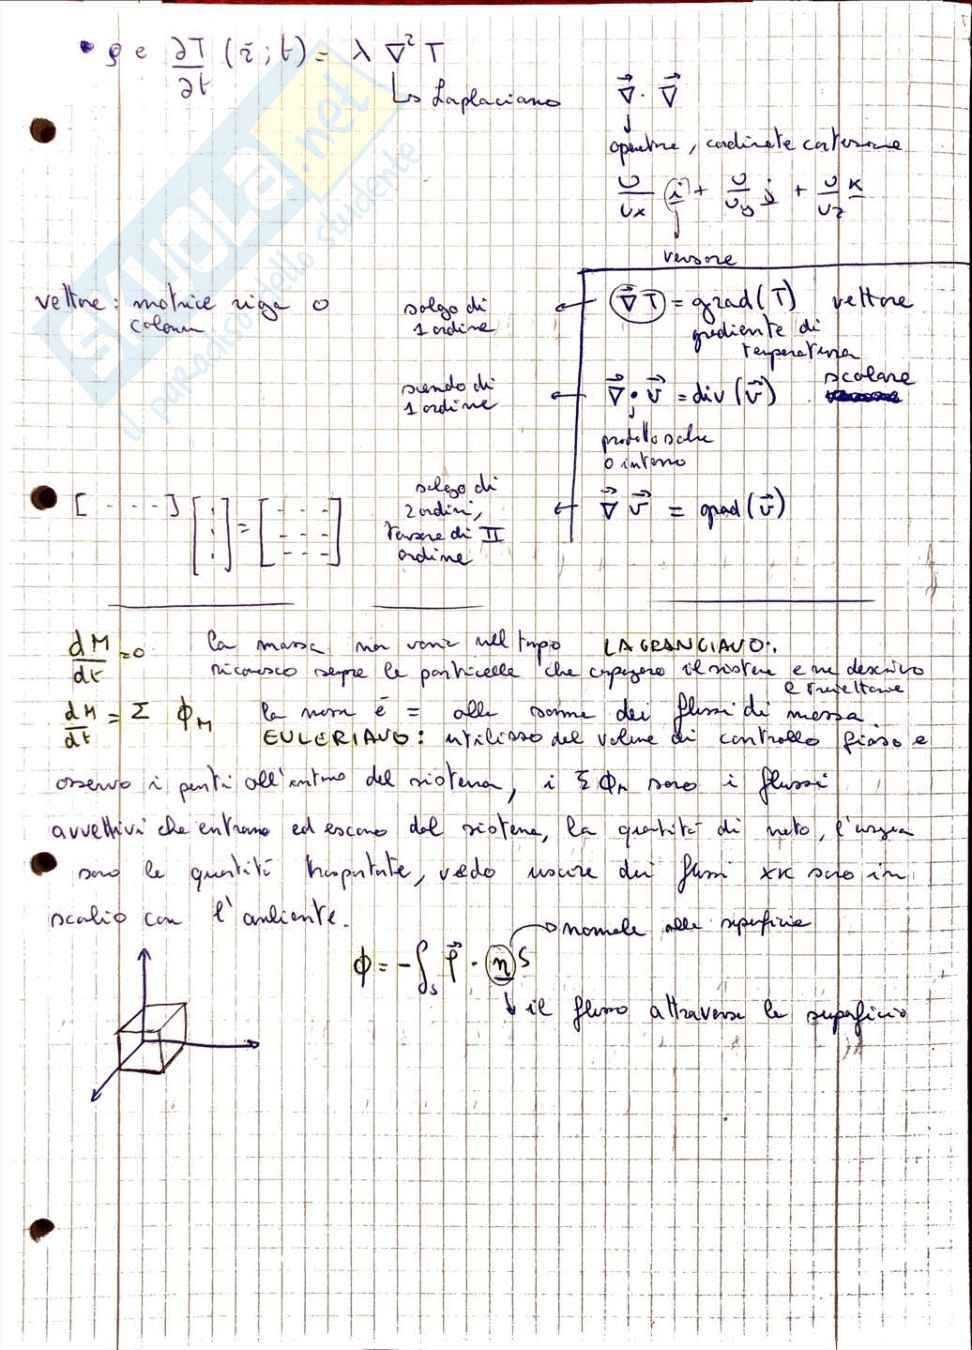 • ρ c ∂T/∂t (r̄; t) = λ ∇² T
↳ Laplaciano
∇⃗ · ∇⃗
operatore, coordinate cartesiane
∂/∂x i + ∂/∂y j + ∂/∂z k
versore
vettore: matrice riga o
colonna
salgo di
1 ordine
← ∇⃗ T = grad(T) vettore
gradiente di
temperatura
scendo di
1 ordine
← ∇⃗ · v⃗ = div(v⃗) scalare
prodotto scalare
o interno
[ - - - ] [ ⋮ ] = [ - - - ]
salgo di
2 ordini,
tensore di II
ordine
← ∇⃗ v⃗ = grad(v⃗)
dM/dt = 0 la massa non varia nel tempo LAGRANGIANO:
riconosco sempre le particelle che compongono il sistema e ne descrivo
e traiettorie
dM/dt = Σ ϕM la massa è = alla somma dei flussi di massa.
EULERIANO: utilizzo del volume di controllo fisso e
osservo i punti all'interno del sistema, i Σ ϕM sono i flussi
avvettivi che entrano ed escono dal sistema, la quantità di moto, l'energia
sono le quantità trasportate, vedo uscire dei flussi xk sono in
scambio con l'ambiente.
ϕ = - ∫s f⃗ · n S
normale alla superficie
↓ il flusso attraversa la superficie
SKUOLA.net
il paradiso dello studente